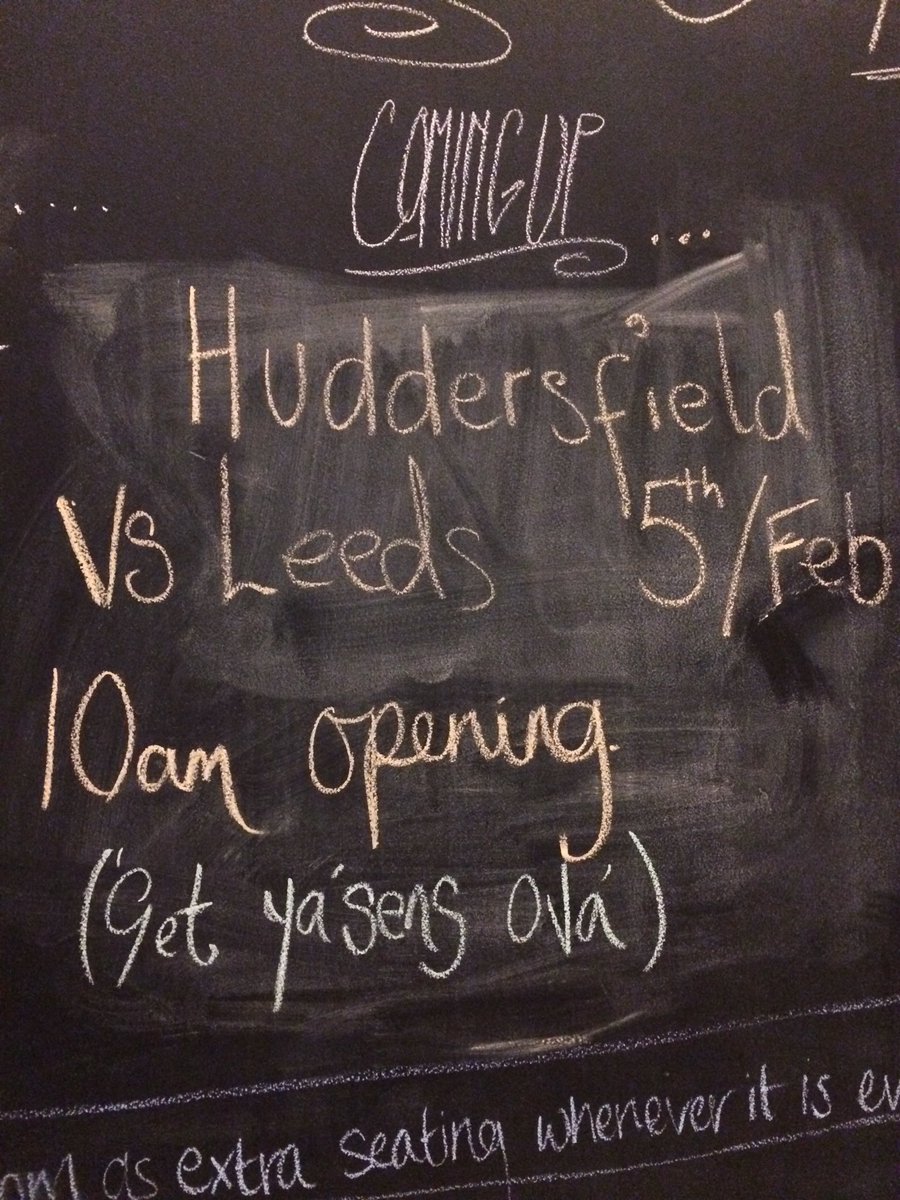 COMING UP ...
Huddersfield
Vs Leeds 5th/Feb
10am opening.
(Get ya'sens ová)
as extra seating whenever it is